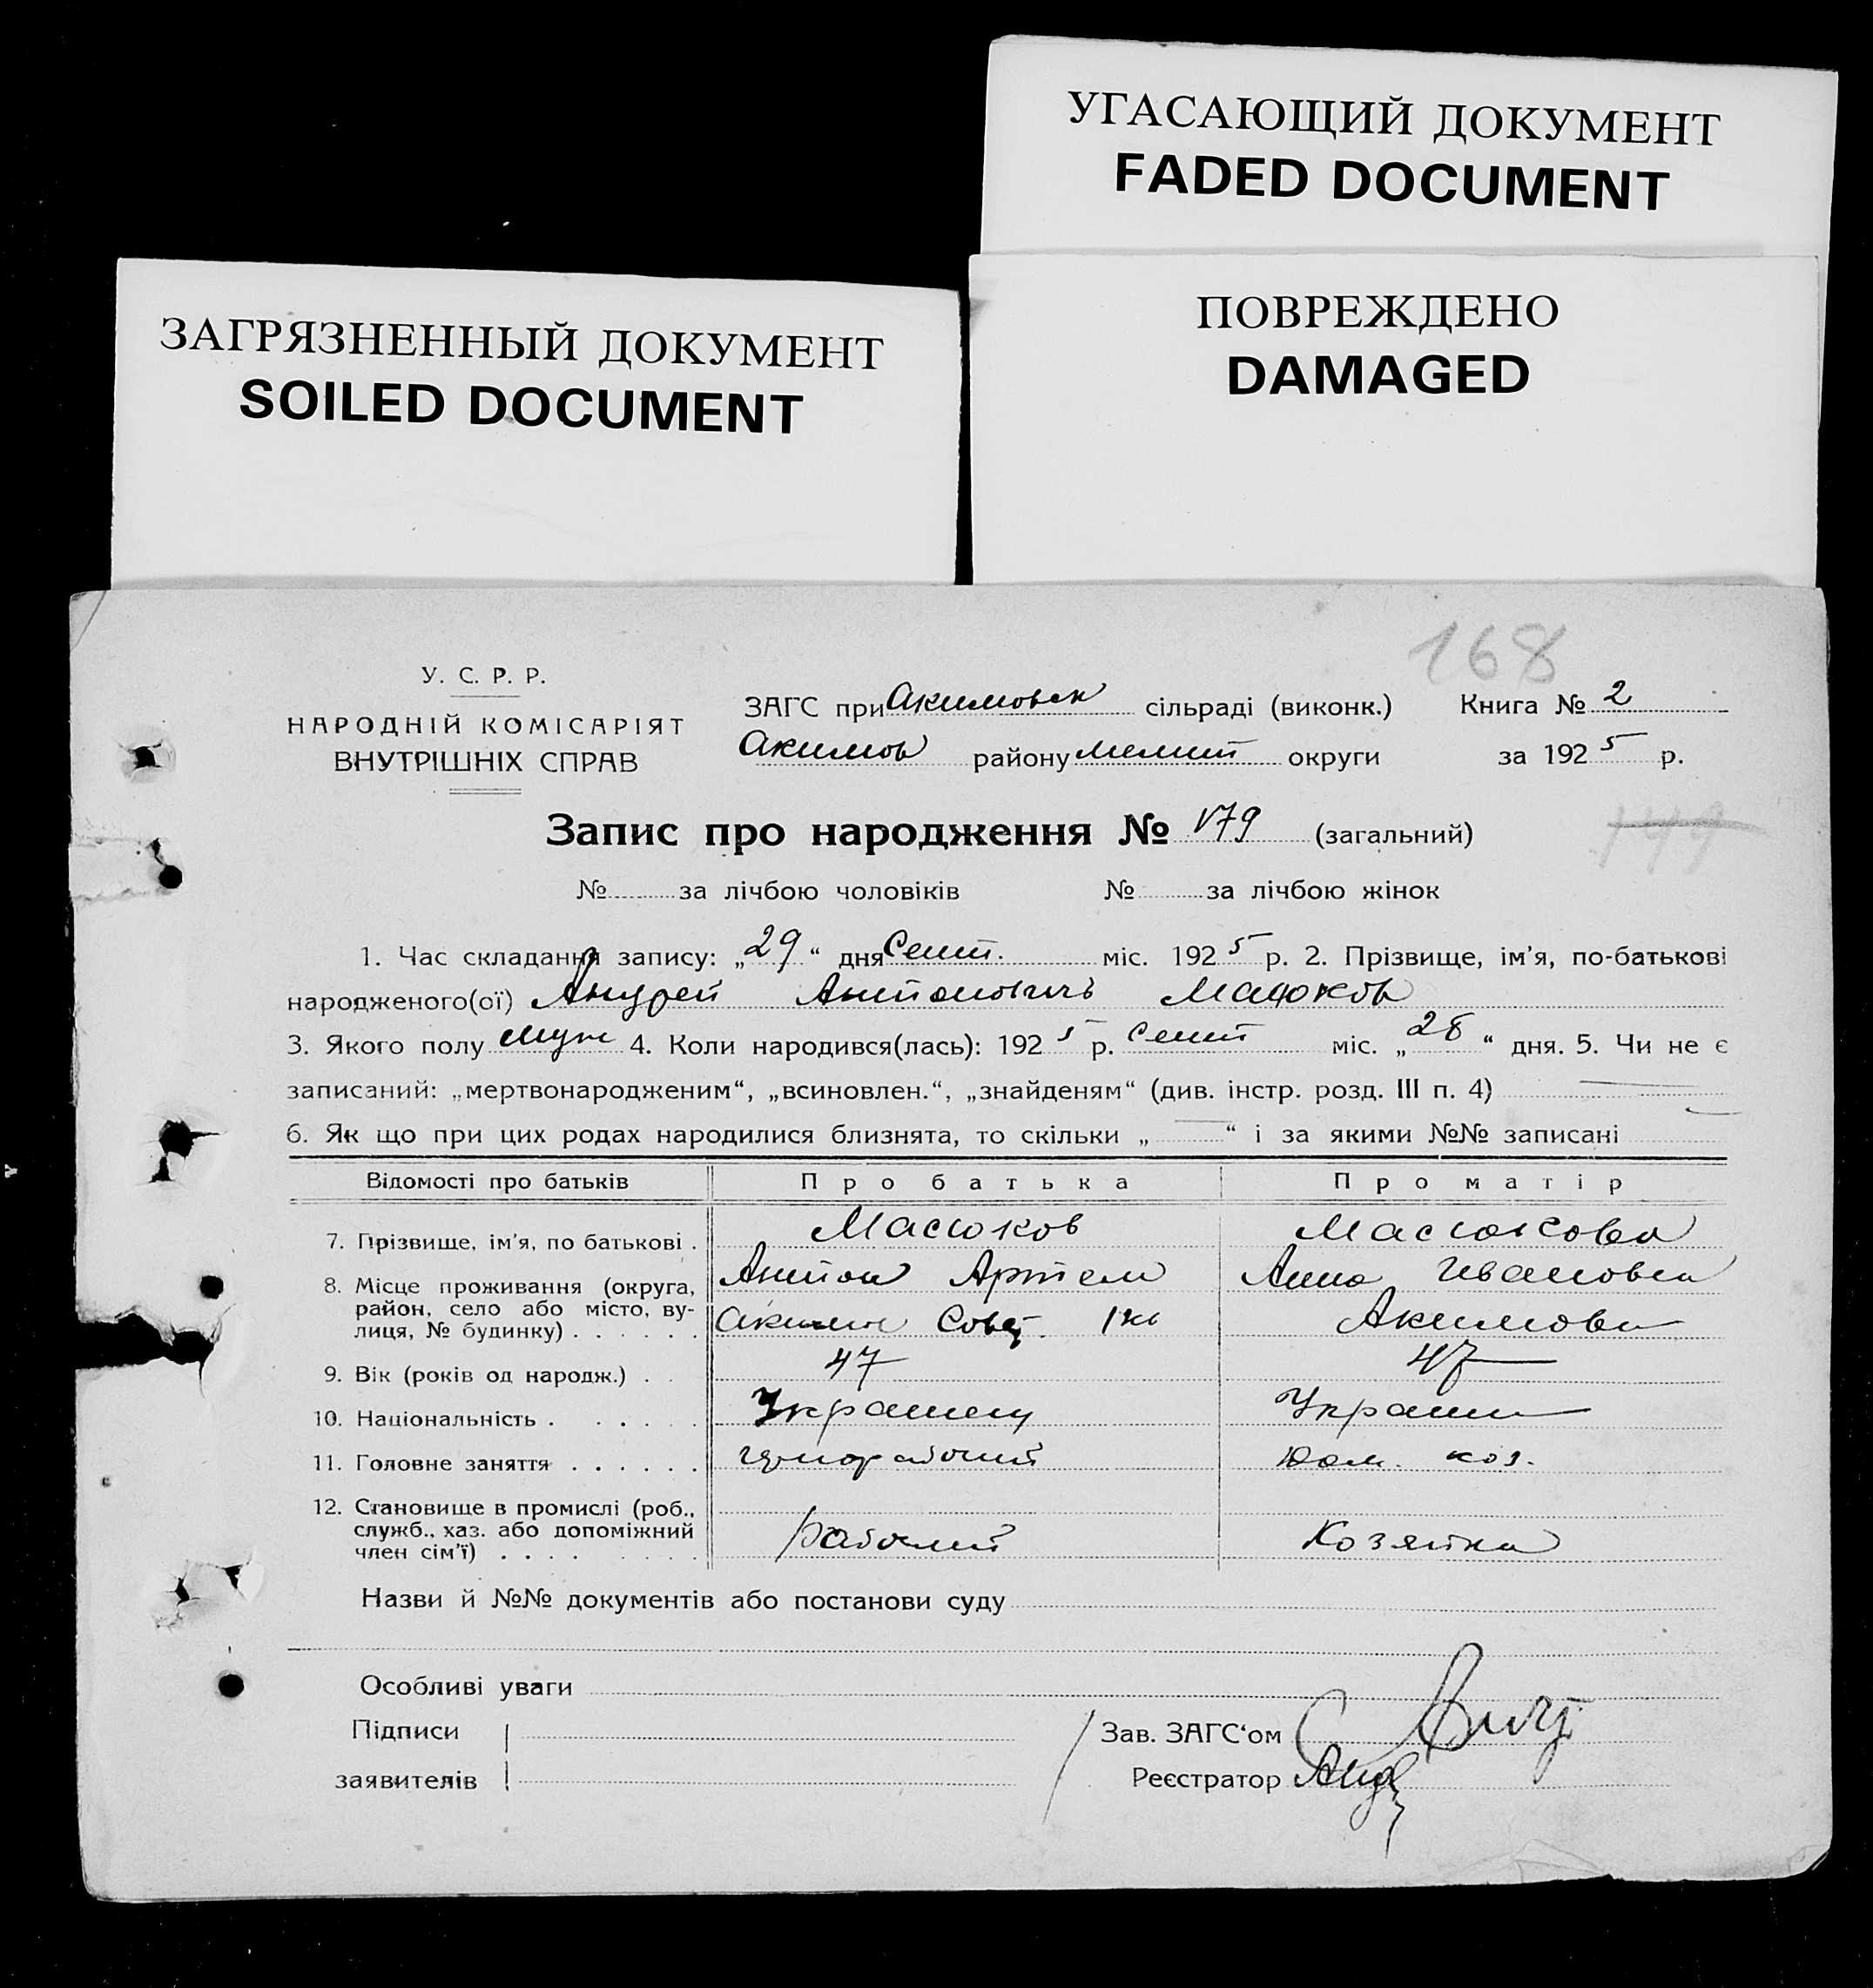 УГАСАЮЩИЙ ДОКУМЕНТ
FADED DOCUMENT
ЗАГРЯЗНЕННЫЙ ДОКУМЕНТ
SOILED DOCUMENT
ПОВРЕЖДЕНО
DAMAGED
168
У. С. Р. Р.
НАРОДНІЙ КОМІСАРІЯТ
ВНУТРІШНІХ СПРАВ
ЗАГС при Акимовск сільраді (виконк.) Книга № 2
Акимов району Мелит округи за 1925 р.
Запис про народження № 179 (загальний)
№ за лічбою чоловіків № за лічбою жінок
1. Час складання запису: „29“ дня Сент. міс. 1925 р. 2. Прізвище, ім’я, по-батькові
народженого(ої) Андрей Антонович Масюков
3. Якого полу муж 4. Коли народився(лась): 1925 р. Сент міс. „28“ дня. 5. Чи не є
записаний: „мертвонародженим“, „всиновлен.“, „знайденям“ (див. інстр. розд. III п. 4)
6. Як що при цих родах народилися близнята, то скільки „ “ і за якими №№ записані
Відомості про батьків Про батька Про матір
7. Прізвище, ім’я, по батькові . Масюков Масюкова
Антон Артем Анна Ивановна
8. Місце проживання (округа,
район, село або місто, ву-
лиця, № будинку) . . . . . . Акимов Совет. Акимовка
9. Вік (років од народж.) . . 47 47
10. Національність . . . . . Украинец Украин
11. Головне заняття . . . . . . чернорабочий Дом. хоз.
12. Становище в промислі (роб.,
служб., хаз. або допоміжний
член сім’ї) . . . . . . . . Рабочий Хозяйка
Назви й №№ документів або постанови суду
Особливі уваги
Підписи
заявителів
Зав. ЗАГС‘ом
Реєстратор